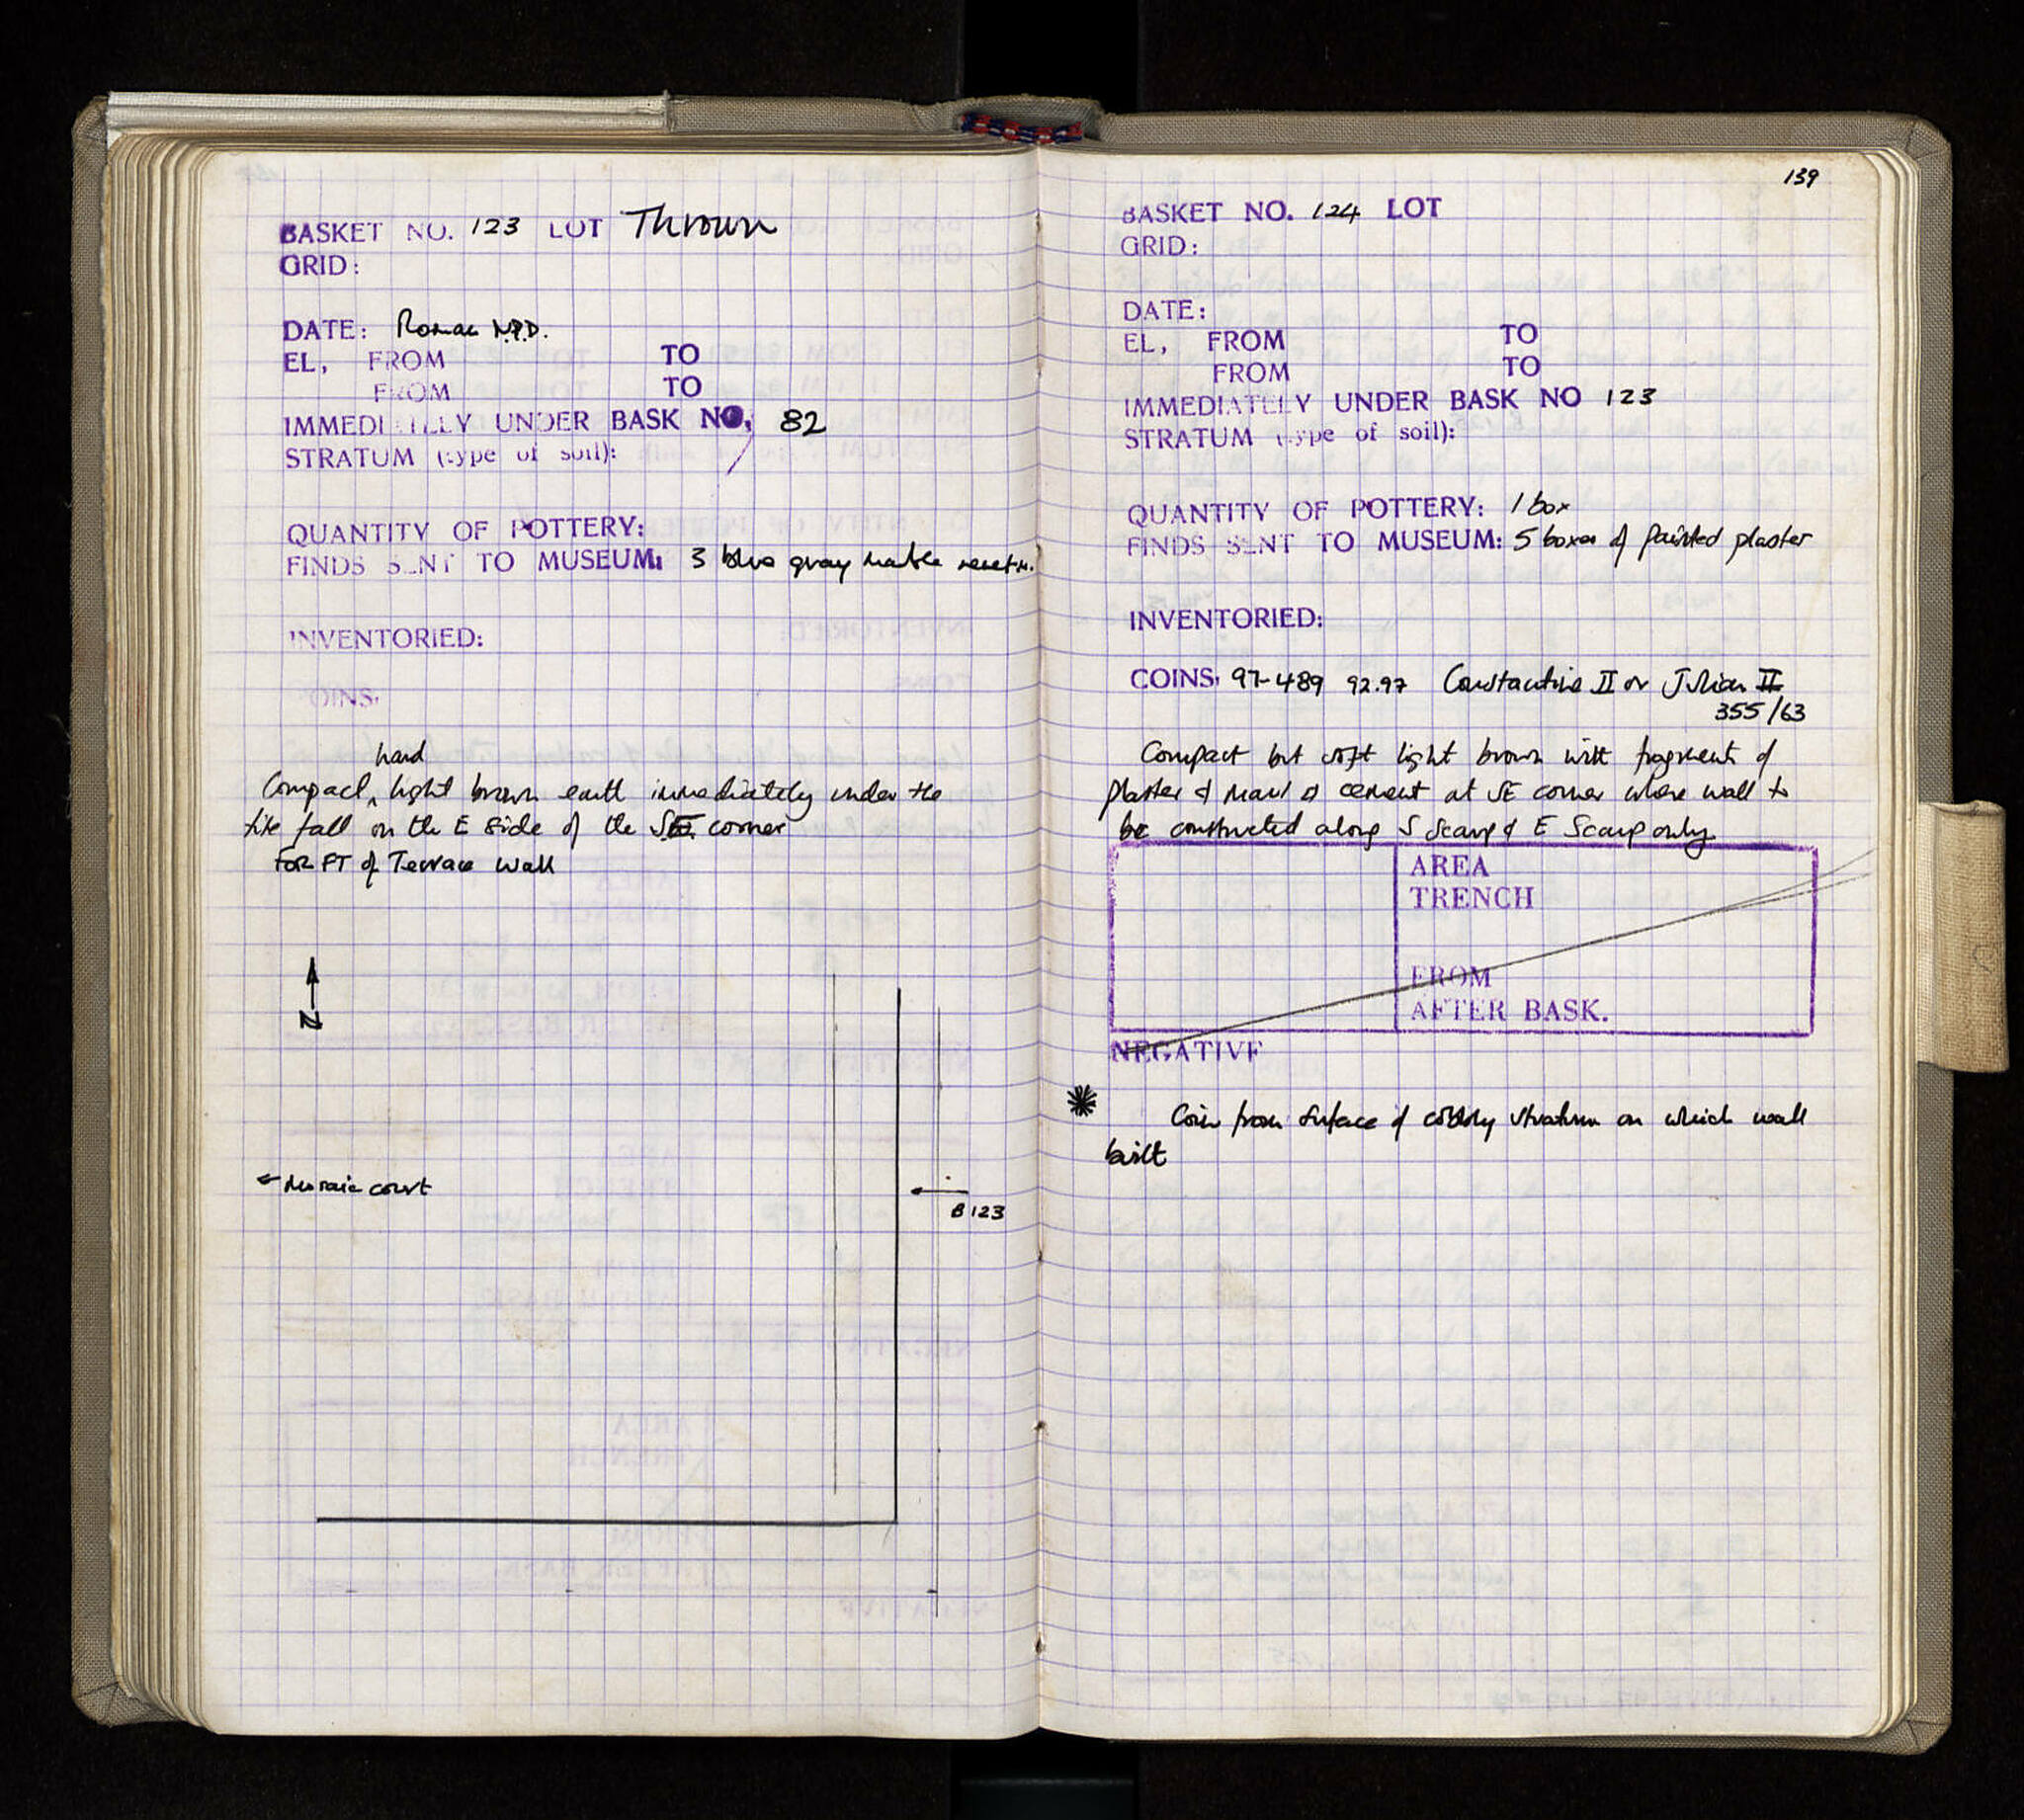 BASKET NO. 123 LOT Thrown
GRID:
DATE: Roman N.P.D.
EL, FROM TO
FROM TO
IMMEDIATELY UNDER BASK NO, 82
STRATUM (type of soil):
QUANTITY OF POTTERY:
FINDS SENT TO MUSEUM: 3 blue gray marble
INVENTORIED:
COINS:
hard
Compact, light brown earth immediately under the
tile fall on the E side of the SE corner
FOR FT of Terrace Wall
N
← Mosaic court
B 123
139
BASKET NO. 124 LOT
GRID:
DATE:
EL, FROM TO
FROM TO
IMMEDIATELY UNDER BASK NO 123
STRATUM (type of soil):
QUANTITY OF POTTERY: 1 box
FINDS SENT TO MUSEUM: 5 boxes of painted plaster
INVENTORIED:
COINS: 97-489 92.97 Constantine II or Julian II
355/63
Compact but soft light brown with fragments of
plaster & marl & cement at SE corner where wall to
be constructed along S Scarp & E Scarp only
AREA
TRENCH
FROM
AFTER BASK.
NEGATIVE
* Coin from surface of cobbly stratum on which wall
built